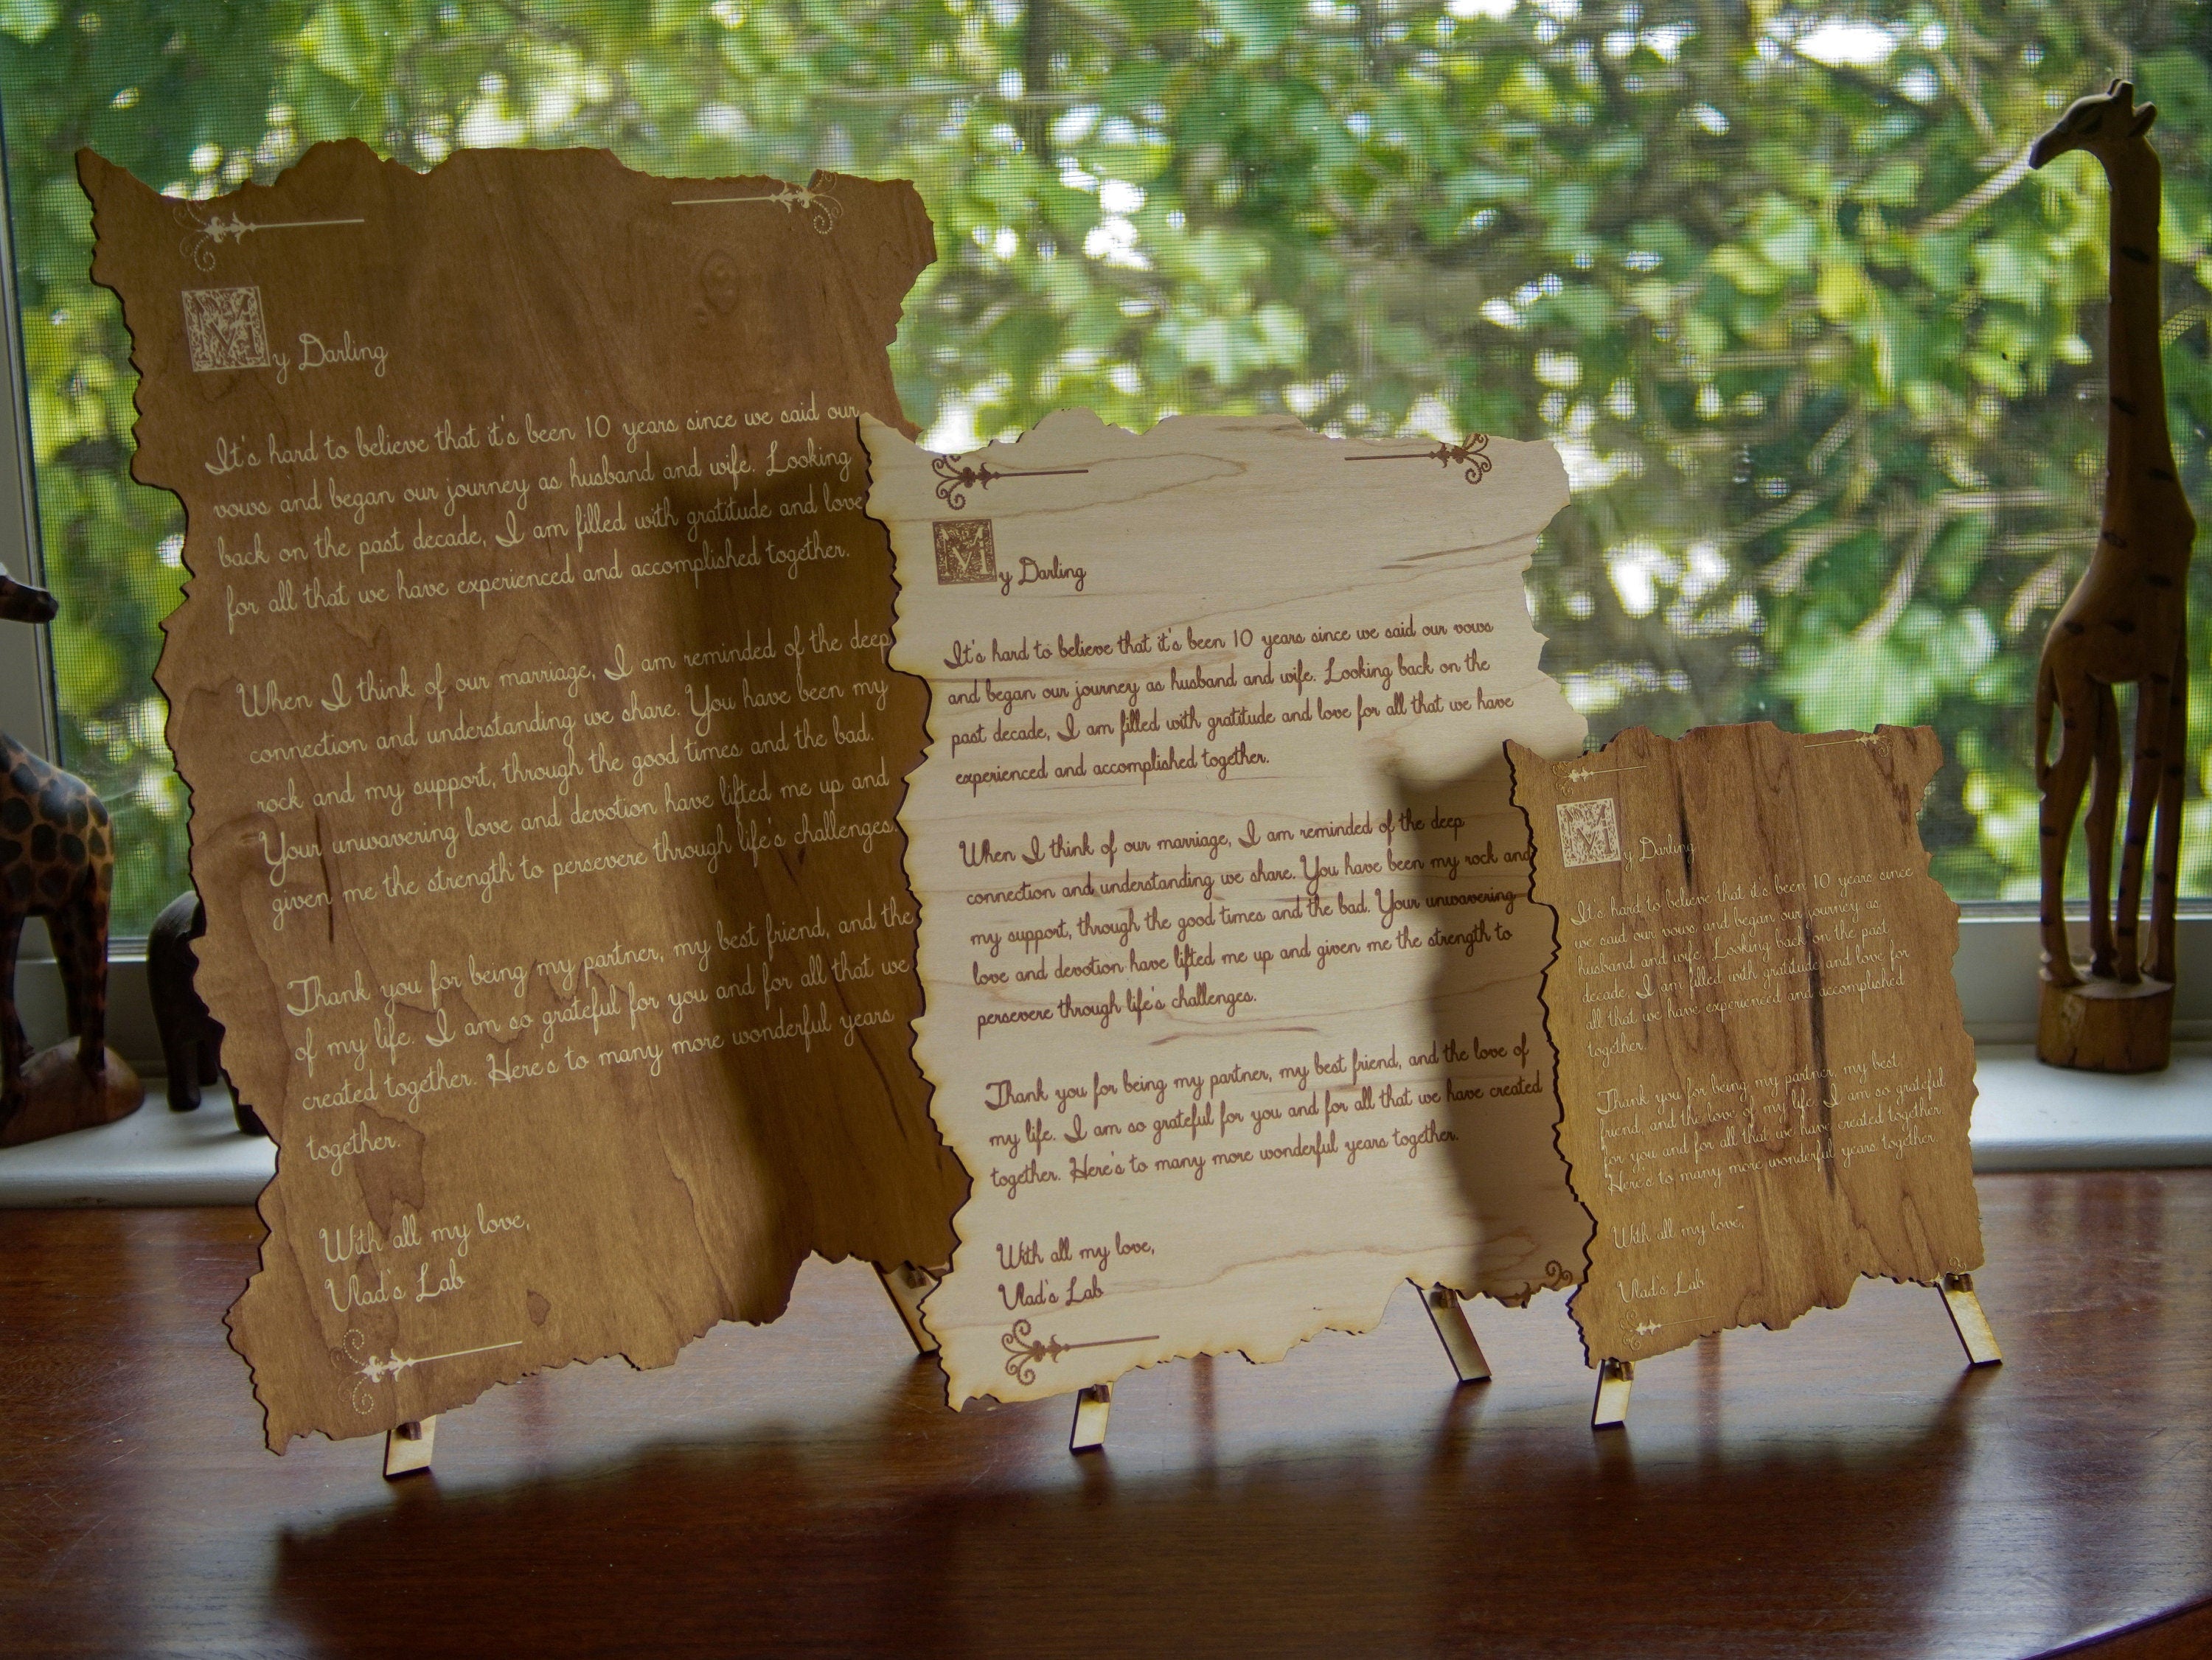 My Darling
It's hard to believe that it's been 10 years since we said our
vows and began our journey as husband and wife. Looking
back on the past decade, I am filled with gratitude and love
for all that we have experienced and accomplished together.
When I think of our marriage, I am reminded of the deep
connection and understanding we share. You have been my
rock and my support, through the good times and the bad.
Your unwavering love and devotion have lifted me up and
given me the strength to persevere through life's challenges.
Thank you for being my partner, my best friend, and the
of my life. I am so grateful for you and for all that we
created together. Here's to many more wonderful years
together.
With all my love,
Vlad's Lab
My Darling
It's hard to believe that it's been 10 years since we said our vows
and began our journey as husband and wife. Looking back on the
past decade, I am filled with gratitude and love for all that we have
experienced and accomplished together.
When I think of our marriage, I am reminded of the deep
connection and understanding we share. You have been my rock and
my support, through the good times and the bad. Your unwavering
love and devotion have lifted me up and given me the strength to
persevere through life's challenges.
Thank you for being my partner, my best friend, and the love of
my life. I am so grateful for you and for all that we have created
together. Here's to many more wonderful years together.
With all my love,
Vlad's Lab
My Darling
It's hard to believe that it's been 10 years since
we said our vows and began our journey as
husband and wife. Looking back on the past
decade, I am filled with gratitude and love for
all that we have experienced and accomplished
together.
Thank you for being my partner, my best
friend, and the love of my life. I am so grateful
for you and for all that we have created together.
Here's to many more wonderful years together.
With all my love,
Vlad's Lab